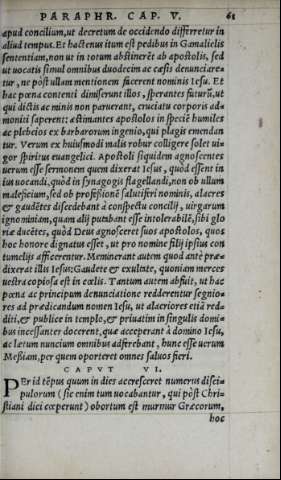 PARAPHR. CAP. V. 61
apud concilium, ut decretum de occidendo differretur in
aliud tempus. Et hactenus itum est pedibus in Gamalielis
sententiam, non ut in totum abstinerēt ab apostolis, sed
ut uocatis simul omnibus duodecim ac cæsis denunciare=
tur, ne pòst ullam mentionem facerent nominis Iesu. Et
hac pœna contenti dimiserunt illos, sperantes futurū, ut
qui dictis ac minis non paruerant, cruciatu corporis ad=
moniti saperent: æstimantes apostolos in speciē humiles
ac plebeios ex barbarorum ingenio, qui plagis emendan
tur. Verum ex huiusmodi malis robur colligere solet ui=
gor spiritus euangelici. Apostoli siquidem agnoscentes
uerum esse sermonem quem dixerat Iesus, quòd essent in
ius uocandi, quòd in synagogis flagellandi, non ob ullum
maleficium, sed ob professionē salutiferi nominis, alacres
& gaudētes discedebant à conspectu concilij, uirgarum
ignominiam, quam alij putabant esse intolerabilē, sibi glo
riæ ducētes, quòd Deus agnosceret suos apostolos, quos
hoc honore dignatus esset, ut pro nomine filij ipsius con
tumelijs afficerentur. Meminerant autem quod antè præ=
dixerat illis Iesus: Gaudete & exultate, quoniam merces
uestra copiosa est in cœlis. Tantum autem abfuit, ut hac
pœna ac principum denunciatione redderentur segnio=
res ad prædicandum nomen Iesu, ut alacriores etiā red=
diti, & publice in templo, & priuatim in singulis domi=
bus incessanter docerent, quæ acceperant à domino Iesu,
ac lætum nuncium omnibus adferebant, hunc esse uerum
Messiam, per quem oporteret omnes saluos fieri.
CAPVT VI.
PEr id tēpus quum in dies accresceret numerus disci=
pulorum (sic enim tum uocabantur, qui pòst Chri=
stiani dici cœperunt) obortum est murmur Græcorum,
hoc